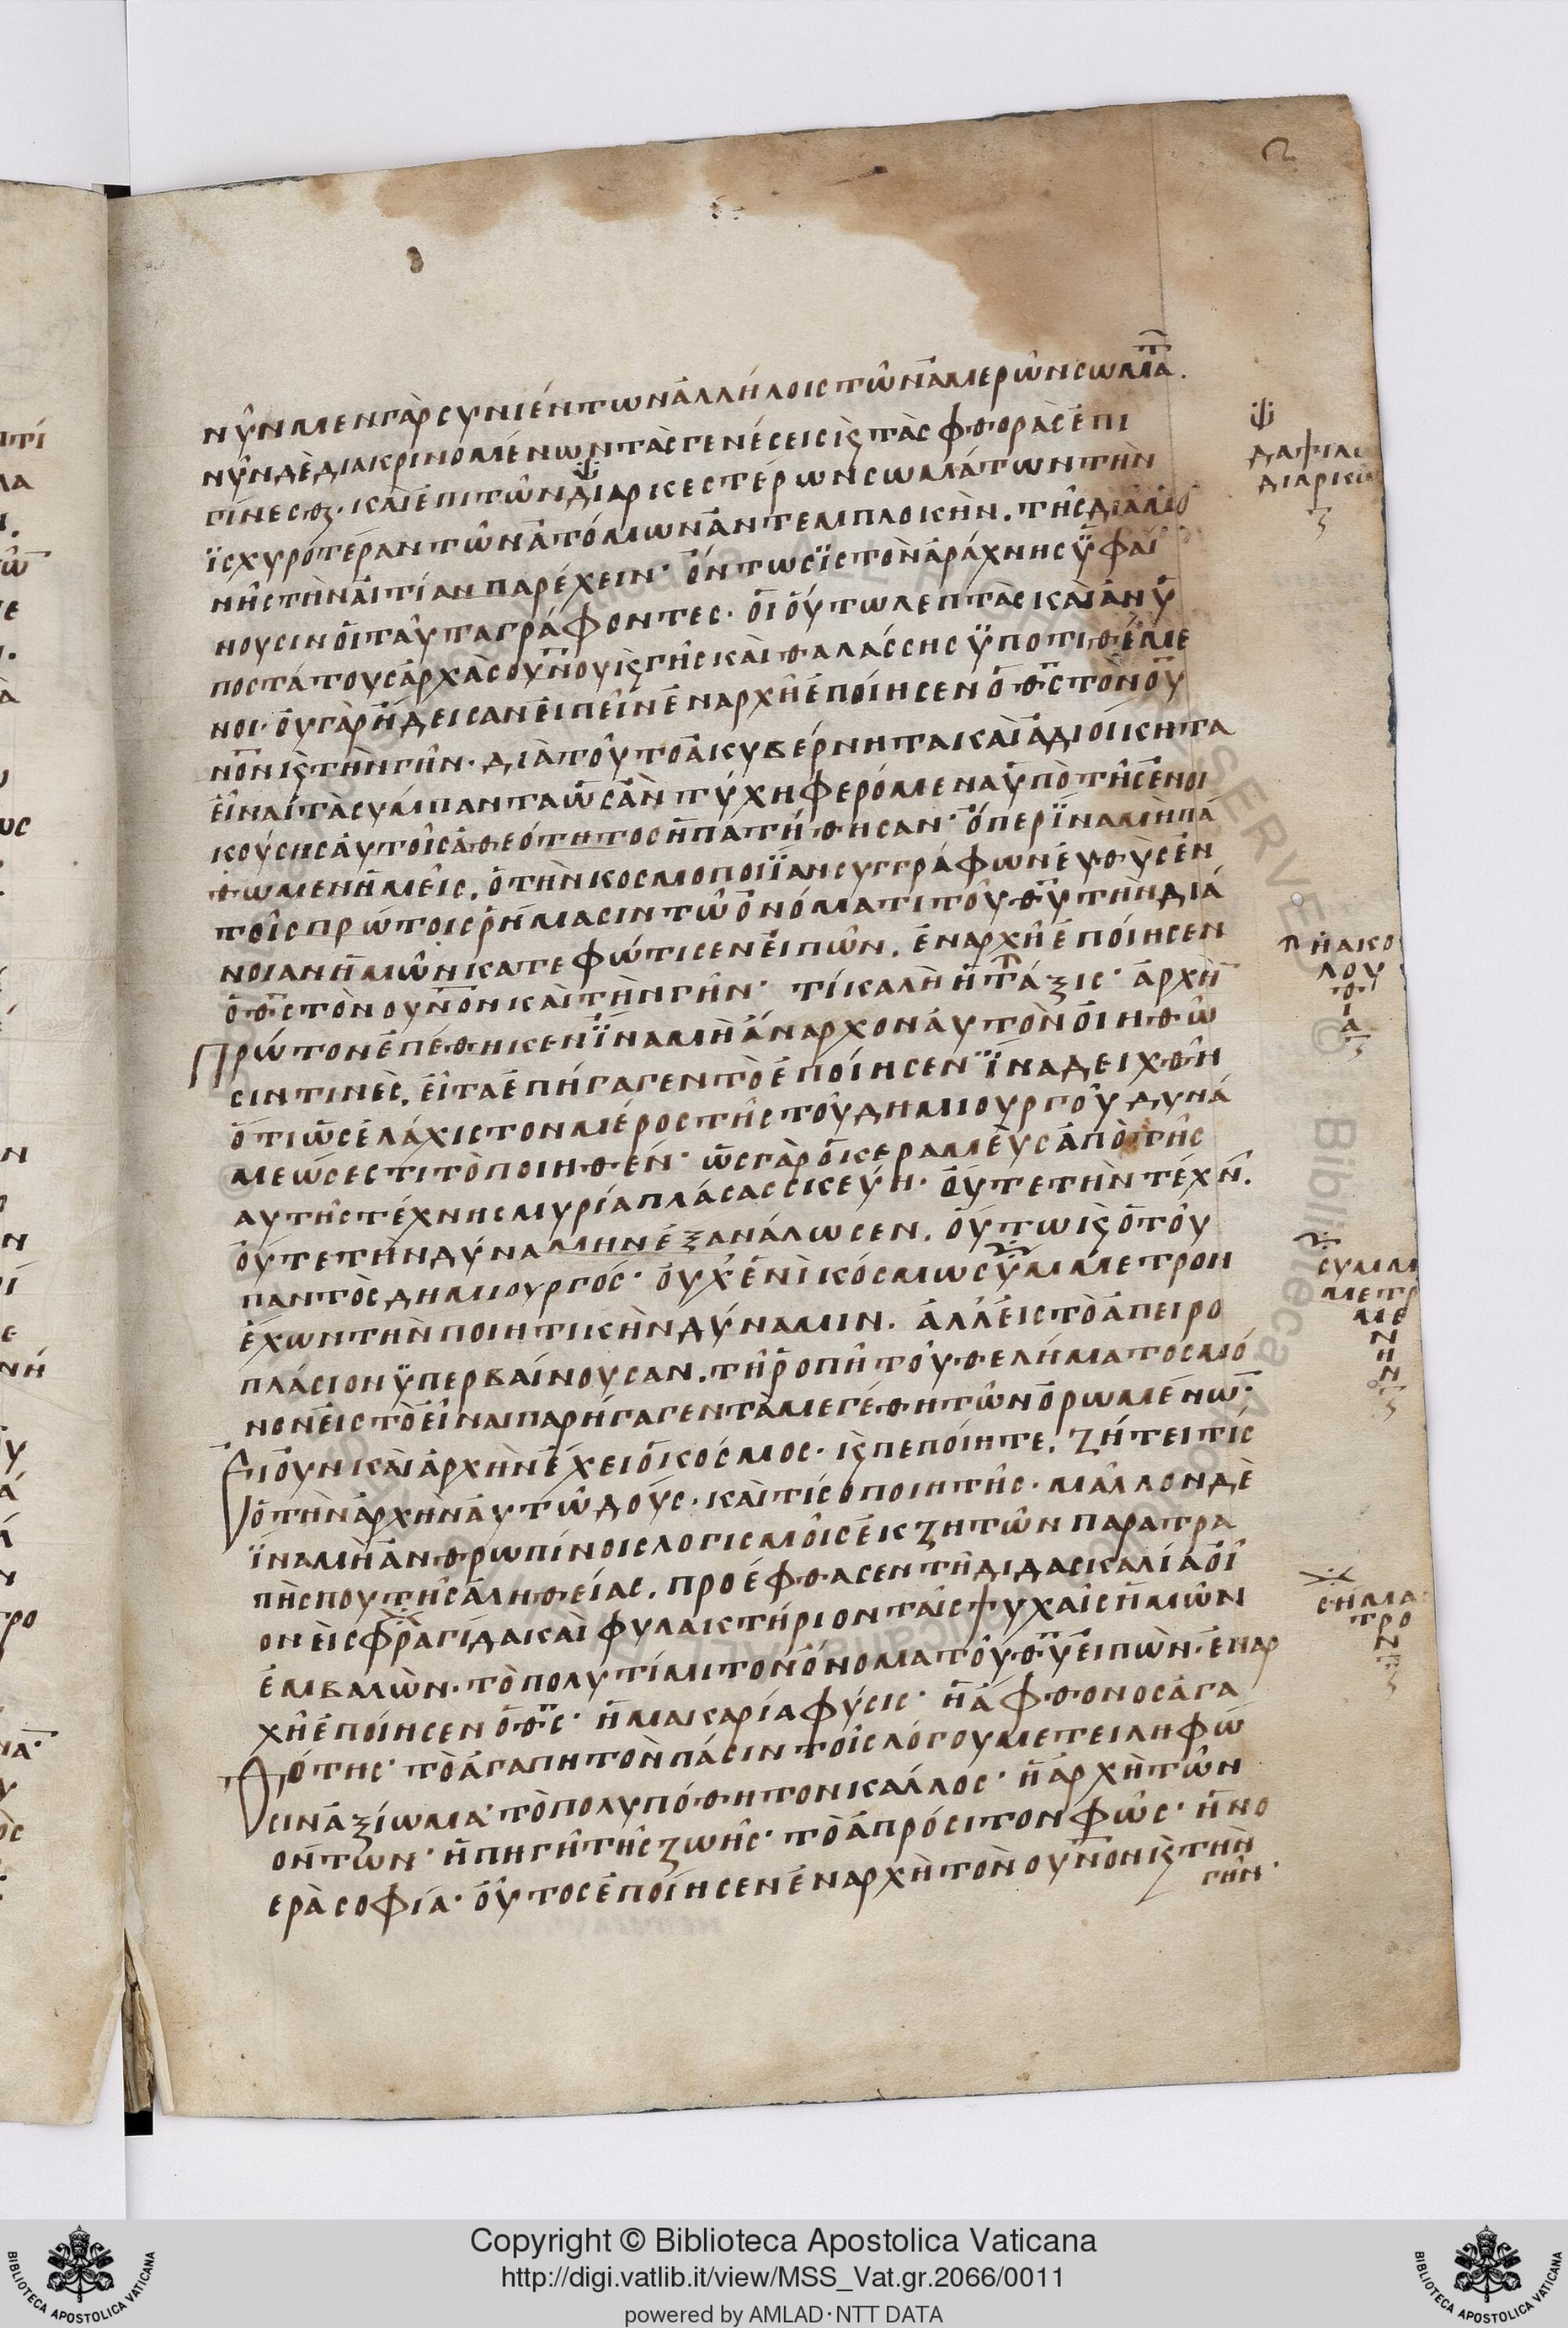 νῦν μεν γὰρ συνιέντων ἀλλήλοις τῶν ἀμερῶν σωμάτ.
νῦν δὲ διακρινομένων τὰς γενέσεις κ τὰς φθορὰς ἐπι
γίνεσθ. καὶ ἐπι τῶν διαρκεστέρων σωμάτων τὴν
ϊσχυρότεραν τῶν ἀτόμων ἀντεμπλοκὴν. τῆς διαμο
νῆς τὴν ἀιτίαν παρέχειν· ὄντως ϊστὸν ἀράχνης ϋφαί
νουσιν ὁι ταῦτα γράφοντες. ὁι ὅυτω λεπτὰς καὶ ἀνυ
ποστάτους ἀρχὰς ουνου κ γῆς καὶ θαλάσσης ϋποτιθέμε
νοι· ὀυ γὰρ ἤδεισαν ἐιπεῖν ἐν αρχῆ ἐποίησεν ὁ θς τὸν ου
νον κ τὴν γῆν. διὰ τοῦτο ἀκυβέρνητα καὶ ἀδιοίκητα
ἐῖναί τὰ σύμπαντα ὡς ἀν τύχη φερόμενα ὑπὸ τῆς ἐνοι
κούσης ἀυτοῖς ἀθεότητος ἠπατήθησαν· ὅπερ ϊνα μὴ πά
θωμεν ἡμεῖς. ὁ τὴν κοσμοποιϊαν συγγράφων ἐυθὺς ἐν
τοῖς πρώτοις ῥήμασιν τῶ ὀνόματι τοῦ θυ τὴν διά
νοιαν ἡμῶν κατεφώτισεν ἐιπῶν. ἐν αρχῆ ἐποίησεν
ὁ θς τὸν ουνον καὶ τὴν γῆν· τί καλὴ ἡ τάξις· ἀρχὴν
Πρώτον ἐπέθηκεν ϊνα μὴ ἄναρχον ἀυτὸν ὀιηθῶ
σιν τινὲς. ἐῖτα ἐπήγαγεν τὸ ἐποίησεν ϊνα δειχθῆ
ὅτι ὡς ἐλάχιστον μέρος τῆς τοῦ δημιουργοῦ δυνά
μεώς εστι τὸ ποιηθὲν· ὡς γὰρ ὁ κεραμεὺς ἀπὸ τῆς
αυτῆς τέχνης μυρία πλάσας σκεύη. ὄυτε τὴν τέχν.
ὄυτε τὴν δύναμην ἐξανάλωσεν. ὅυτω κ ὁ τοῦ
παντὸς δημιουργός· ὀυχ ἑνὶ κόσμω σύμμετρον
ἔχων τὴν ποιητικὴν δύναμιν. ἀλλ ἐις τὸ ἀπειρο
πλάσιον ϋπερβαίνουσαν. τῆ ῥοπῆ τοῦ θελήματος μό
νον ἐις τὸ ἐῖναι παρήγαγεν τὰ μεγέθη τῶν ὁρωμένων·
Ει ὀυν καὶ ἀρχὴν ἔχει ὁ κόσμος. κ πεποίητε. ζήτει τίς
ὁ τὴν ἀρχὴν ἀυτῶ δούς. καὶ τίς ο ποιητῆς. μᾶλλον δὲ
ϊνα μὴ ἀνθρωπίνοις λογισμοῖς ἐκζητῶν παρατρα
πῆς που τῆς ἀληθείας. προέφθασεν τῆ διδασκαλία ὁῖ
ον ἐις φραγίδα καὶ φυλακτήριον ταῖς ψυχαῖς ἡμῶν
ἐμβαλὼν. τὸ πολυτίμιτον ὄνομα τοῦ θυ ἐιπὼν. ἐν αρ
χῆ ἐποίησεν ὁ θς· ἡ μακαρία φύσις· ἡ ἄφθονος ἀγα
θότης· τὸ ἀγαπητὸν πάσιν τοῖς λόγου μετειληφώ
σιν ἀξίωμα· τὸ πολυπόθητον κάλλος· ἡ ἀρχὴ τῶν
οντων· ἡ πηγῆ τῆς ζωῆς· τὸ ἀπρόσιτον φῶς· ἡ νο
ερὰ σοφία· ὅυτος ἐποίησεν ἐν αρχὴ τὸν ουνον κ τὴν
γῆν·
δαψιλε
διαρκε
ἡ ακο
λου
θ
ι
α
συμμ
μετρ
με
ν
η
ν
σήμα
τρο
ν
Copyright © Biblioteca Apostolica Vaticana
http://digi.vatlib.it/view/MSS_Vat.gr.2066/0011
powered by AMLAD·NTT DATA
BIBLIOTECA APOSTOLICA VATICANA
BIBLIOTECA APOSTOLICA VATICANA